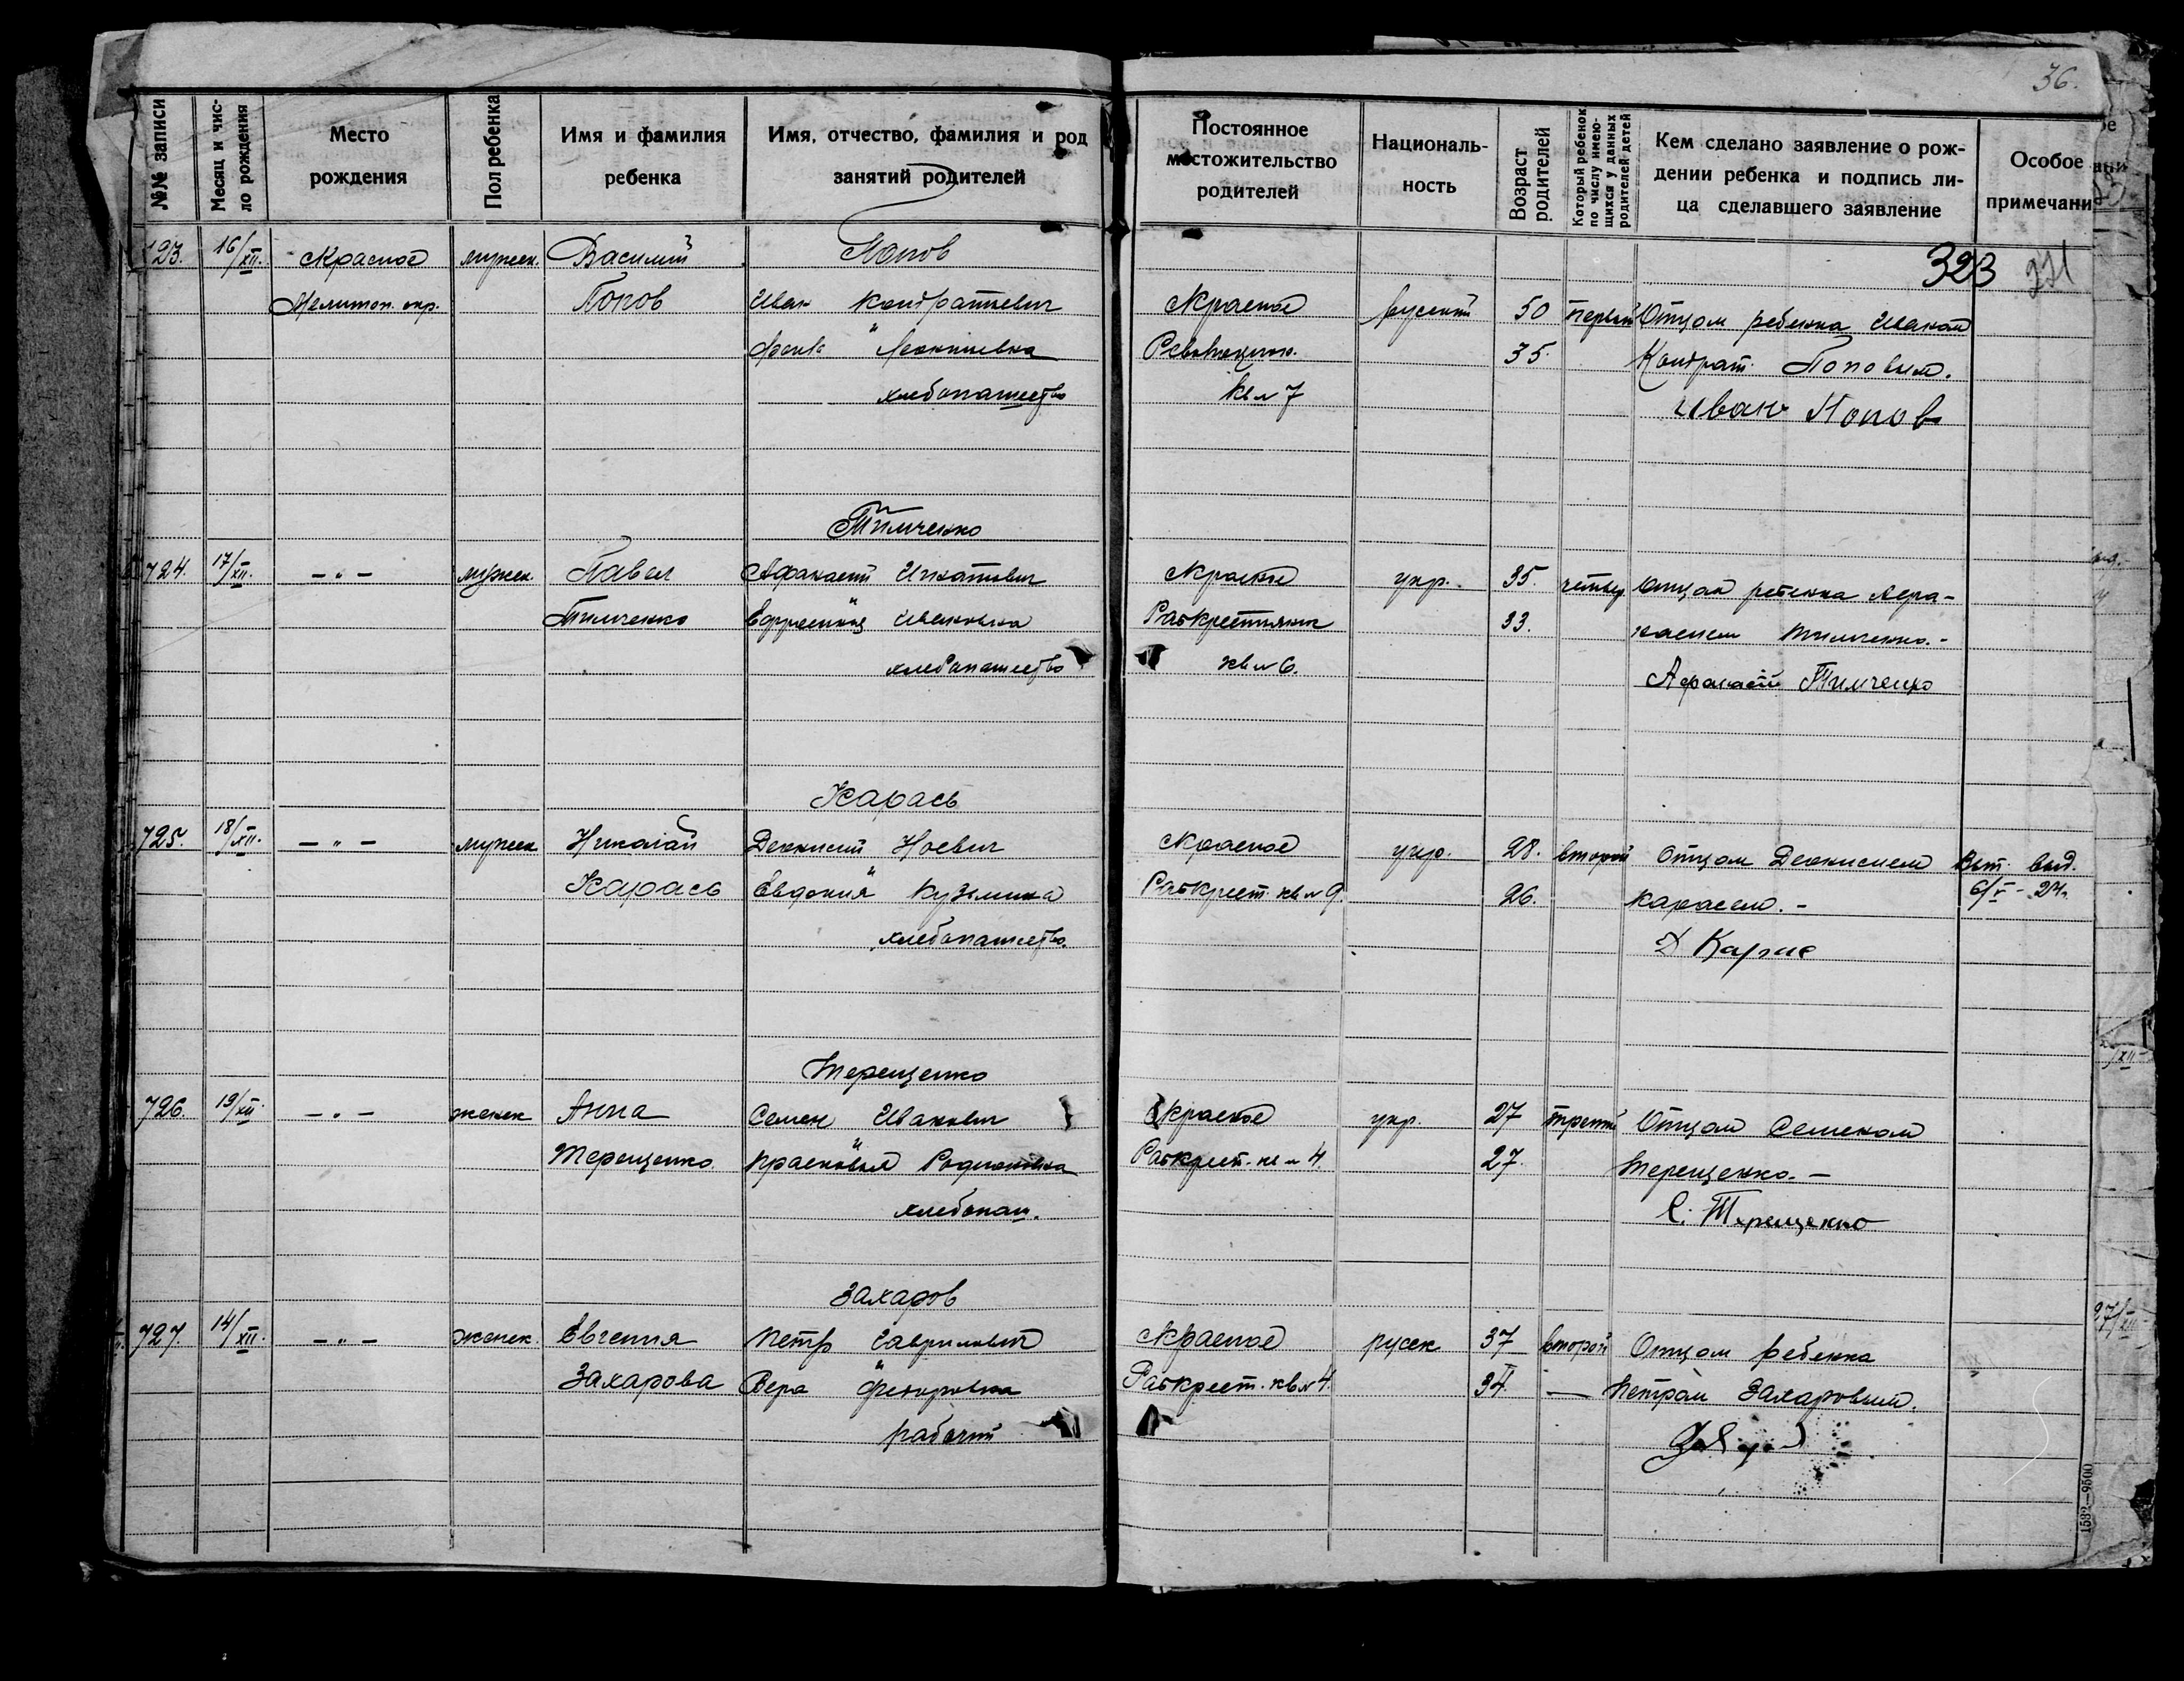 36.
№№ записи
Месяц и число рождения
Место рождения
Пол ребенка
Имя и фамилия ребенка
Имя, отчество, фамилия и род занятий родителей
Постоянное местожительство родителей
Националь-
ность
Возраст родителей
Который ребенок по числу имею-
щихся у данных родителей детей
Кем сделано заявление о рож-
дении ребенка и подпись ли-
ца сделавшего заявление
Особое
примечани
723. 16/XII. Красное мужск. Василий Попов
323 231
Мелитоп. окр. Попов Иван Кондратьевич Красное русский 50 первый Отцом ребенка Иваном
35. Кондрат. Поповым.
хлебопашество кв № 7 Иван Попов
Тимченко
724. 17/XII. — „ — мужск. Павел Афанасий Игнатович Красное укр. 35. четвер. Отцом ребенка Афа-
Тимченко Ефросиния Ивановна Рабкрестянск 33. насием Тимченко. -
хлебопашество кв № 6. Афанасий Тимченко
Карась
725. 18/XII. — „ — мужск Николай Дионисий Ноевич Красное укр. 28. второй Отцом Дионисием Вып. выд.
Карась Евдокия Кузьминна Рабкрест. кв № 9. 26. Карасем. - 6/V - 24г.
хлебопашество. Д Карась
Терещенко
726. 19/XII. — „ — женск Анна Семен Иванович Красное укр. 27 третий Отцом Семеном
Терещенко Прасковья Родионовна Рабкрест. кв № 4. 27. Терещенко. —
хлебопаш. С. Терещенко
Захаров
727. 14/XII. — „ — женск. Евгения Петр Гаврилович Красное русск 37 второй Отцом ребенка
Захарова Вера Федоровна Рабкрест. кв № 4. 34. — Петром Захаровым.
рабочий
1532—9500